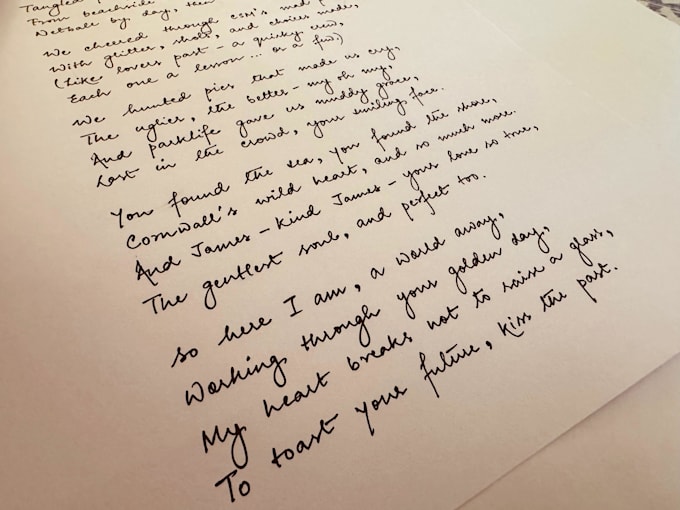 Tangled
From beachside
Netball by day, then
We cheered through CSM's mad
With glitter, shots, and choices made,
(Like lovers past – a quirky crew,
Each one a lesson... or a few)
We hunted pics that made us cry,
The uglier, the better – my oh my,
And parklife gave us muddy grace,
Lost in the crowd, your smiling face.
You found the sea, you found the shore,
Cornwall's wild heart, and so much more.
And James – kind James – your love so true,
The gentlest soul, and perfect too.
So here I am, a world away,
Working through your golden day,
My heart breaks not to raise a glass,
To toast your future, kiss the past.